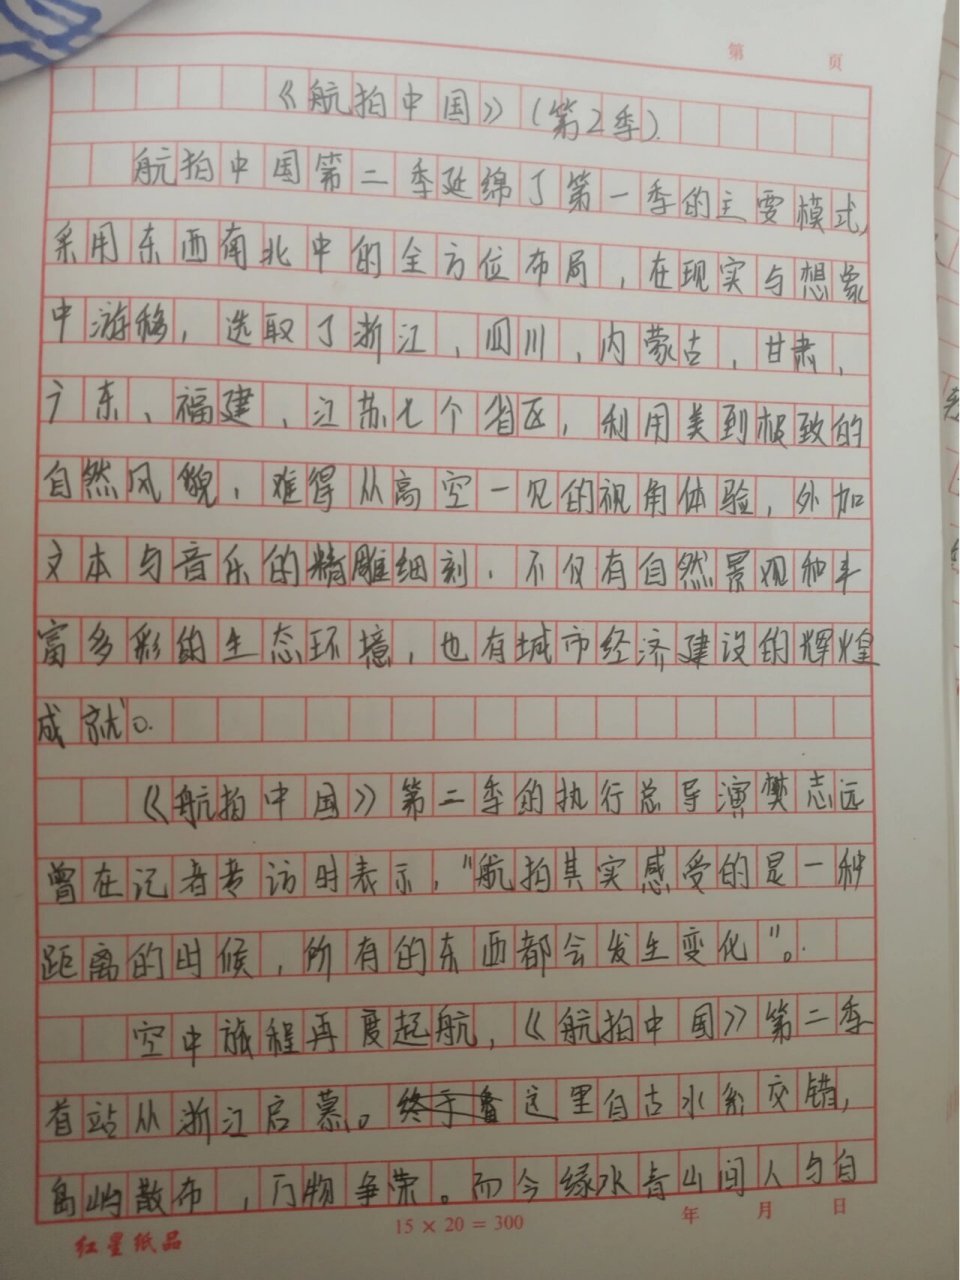 第 页
《航拍中国》（第2季）.
航拍中国第二季延绵了第一季的主要模式,
采用东西南北中的全方位布局，在现实与想象
中游移，选取了浙江，四川，内蒙古，甘肃，
广东、福建，江苏七个省区，利用美到极致的
自然风貌，难得从高空一见的视角体验，外加
文本与音乐的精雕细刻，不仅有自然景观和丰
富多彩的生态环境，也有城市经济建设的辉煌
成就。
《航拍中国》第二季的执行总导演樊志远
曾在记者专访时表示，“航拍其实感受的是一种
距离的时候，所有的东西都会发生变化”。
空中旅程再度起航，《航拍中国》第二季
首站从浙江启慕。这里自古水系交错，
岛屿散布，万物争荣。而今绿水青山间人与自
红星纸品 15×20=300 年 月 日